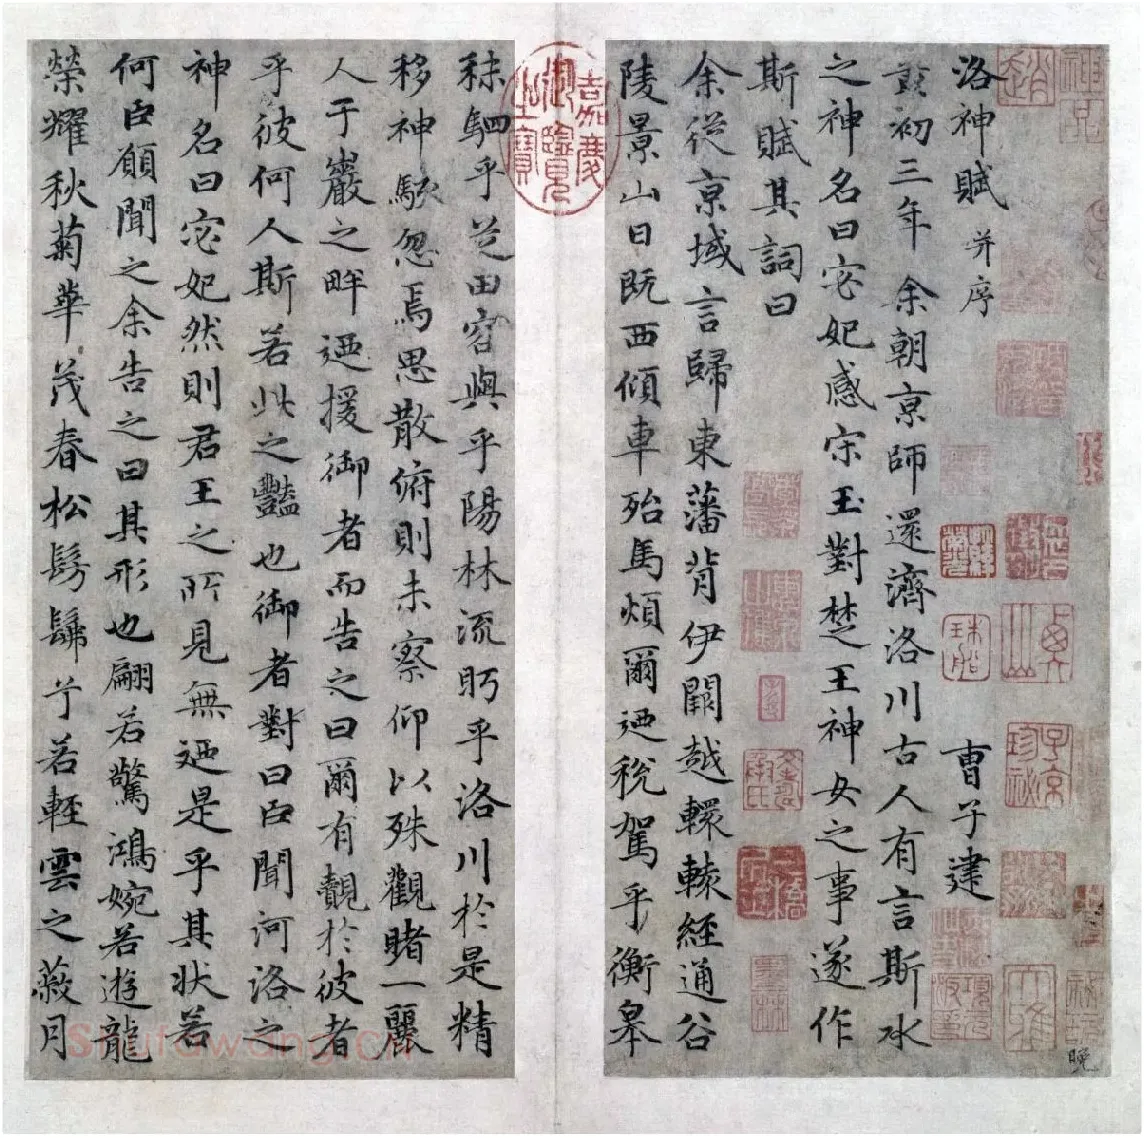 洛神賦 并序 曹子建
黃初三年余朝京師還濟洛川古人有言斯水
之神名曰宓妃感宋玉對楚王神女之事遂作
斯賦其詞曰
余從京域言歸東藩背伊闕越轘轅經通谷
陵景山日既西傾車殆馬煩爾迺稅駕乎蘅皋
秣駟乎芝田容與乎陽林流眄乎洛川於是精
移神駭忽焉思散俯則未察仰以殊觀睹一麗
人于巖之畔迺援御者而告之曰爾有覿於彼者
乎彼何人斯若此之豔也御者對曰臣聞河洛之
神名曰宓妃然則君王之所見無迺是乎其狀若
何臣願聞之余告之曰其形也翩若驚鴻婉若遊龍
榮耀秋菊華茂春松髣髴兮若輕雲之蔽月
嘉慶御覽之寶
晚
Shufawang.cn